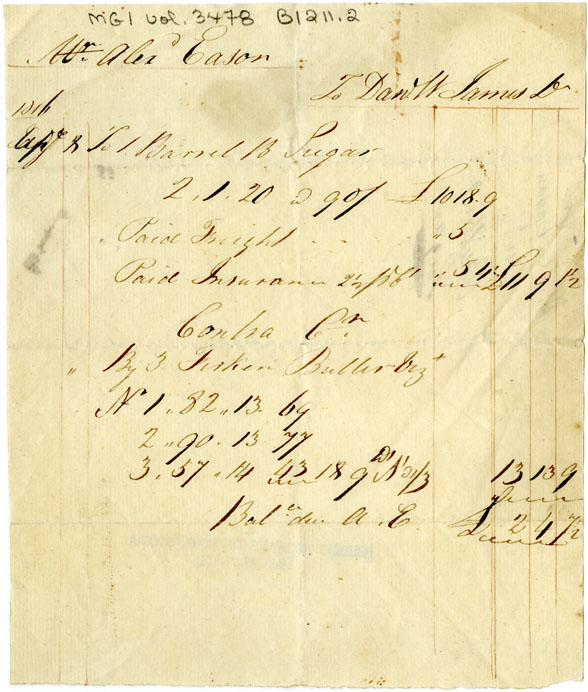 MG1 vol. 3478 B1211.2
Mr. Alexd Eason
To Danl W James Dr
1816
8 To 1 Barrel B Sugar
2.1.20 @ 90/ £10 18.9
" Paid Freight " 5
Paid Insurance 2½ 5 4½ £11 9 1½
Contra Cr
" By 3 Firkin Butter Vizt
No 1.82.13. 69
2.90.13 77
3.57.14 43 1 8 9 @ 1/3 13 13 9
Balce due A. E. £ 2 4 7½